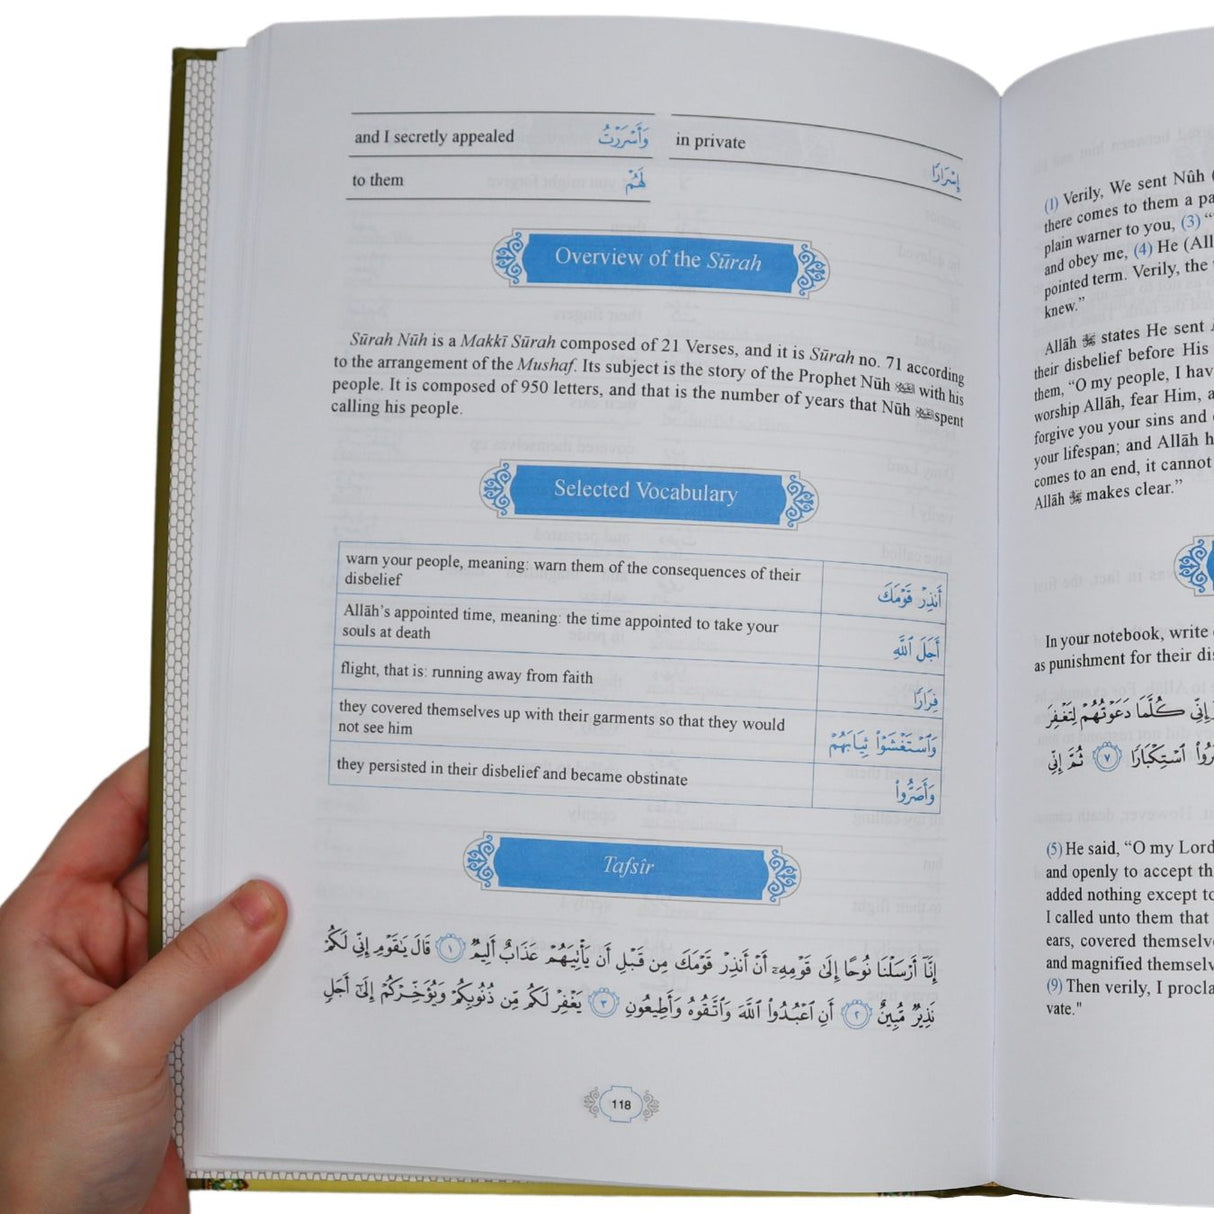 and I secretly appealed وَأَسْرَرْتُ
to them لَهُمْ
in private إِسْرَارًا
Overview of the Sūrah
Sūrah Nūh is a Makkī Sūrah composed of 21 Verses, and it is Sūrah no. 71 according
to the arrangement of the Mushaf. Its subject is the story of the Prophet Nūh with his
people. It is composed of 950 letters, and that is the number of years that Nūh spent
calling his people.
Selected Vocabulary
warn your people, meaning: warn them of the consequences of their
disbelief
أَنذِرْ قَوْمَكَ
Allāh's appointed time, meaning: the time appointed to take your
souls at death
أَجَلَ ٱللَّهِ
flight, that is: running away from faith
فِرَارًا
they covered themselves up with their garments so that they would
not see him
وَٱسْتَغْشَوْا۟ ثِيَابَهُمْ
they persisted in their disbelief and became obstinate
وَأَصَرُّوا۟
Tafsîr
إِنَّآ أَرْسَلْنَا نُوحًا إِلَىٰ قَوْمِهِۦٓ أَنْ أَنذِرْ قَوْمَكَ مِن قَبْلِ أَن يَأْتِيَهُمْ عَذَابٌ أَلِيمٌ ١ قَالَ يَٰقَوْمِ إِنِّي لَكُمْ
نَذِيرٌ مُّبِينٌ ٢ أَنِ ٱعْبُدُوا۟ ٱللَّهَ وَٱتَّقُوهُ وَأَطِيعُونِ ٣ يَغْفِرْ لَكُم مِّن ذُنُوبِكُمْ وَيُؤَخِّرْكُمْ إِلَىٰٓ أَجَلٍ
118
(1) Verily, We sent Nûh
there comes to them a
plain warner to you, (3)
and obey me, (4) He
pointed term. Verily, the
knew."
Allāh ﷻ states He sent
their disbelief before His
them, "O my people, I
worship Allāh, fear Him,
forgive you your sins and
your lifespan; and Allāh
comes to an end, it cannot
Allāh ﷻ makes clear."
In your notebook, write
as punishment for their
إِنِّي كُلَّمَا دَعَوْتُهُمْ لِتَغْفِرَ
ٱسْتِكْبَارًا ٧ ثُمَّ إِنِّي
(5) He said, "O my Lord
and openly to accept
added nothing except
I called unto them that
ears, covered
and magnified
(9) Then verily, I
vate."